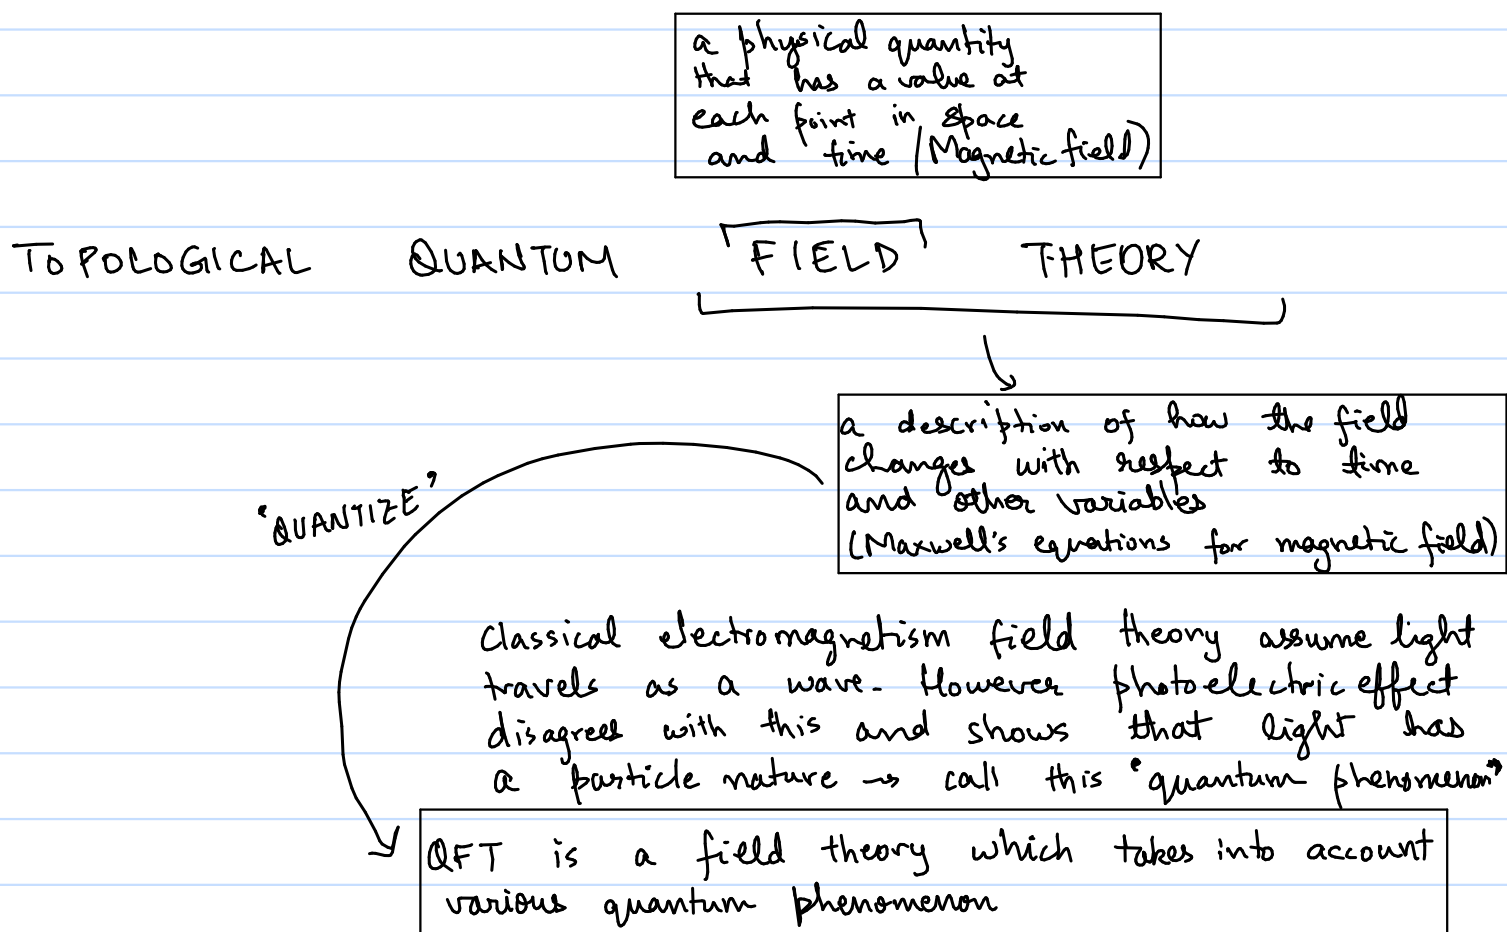 a physical quantity
that has a value at
each point in space
and time (Magnetic field)
TOPOLOGICAL QUANTUM FIELD THEORY
a description of how the field
changes with respect to time
and other variables
(Maxwell's equations for magnetic field)
"QUANTIZE"
Classical electromagnetism field theory assume light
travels as a wave. However photoelectric effect
disagrees with this and shows that light has
a particle nature → call this "quantum phenomenon"
QFT is a field theory which takes into account
various quantum phenomenon